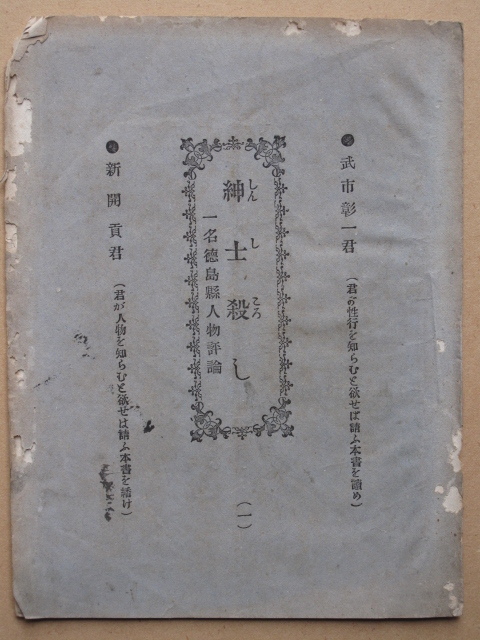 武市彰一君（君が性行を知らむと欲せば請ふ本書を讀め）
紳士殺し
しんしころし
一名德島縣人物評論
（一）
新開貢君（君が人物を知らむと欲せは請ふ本書を繙け）